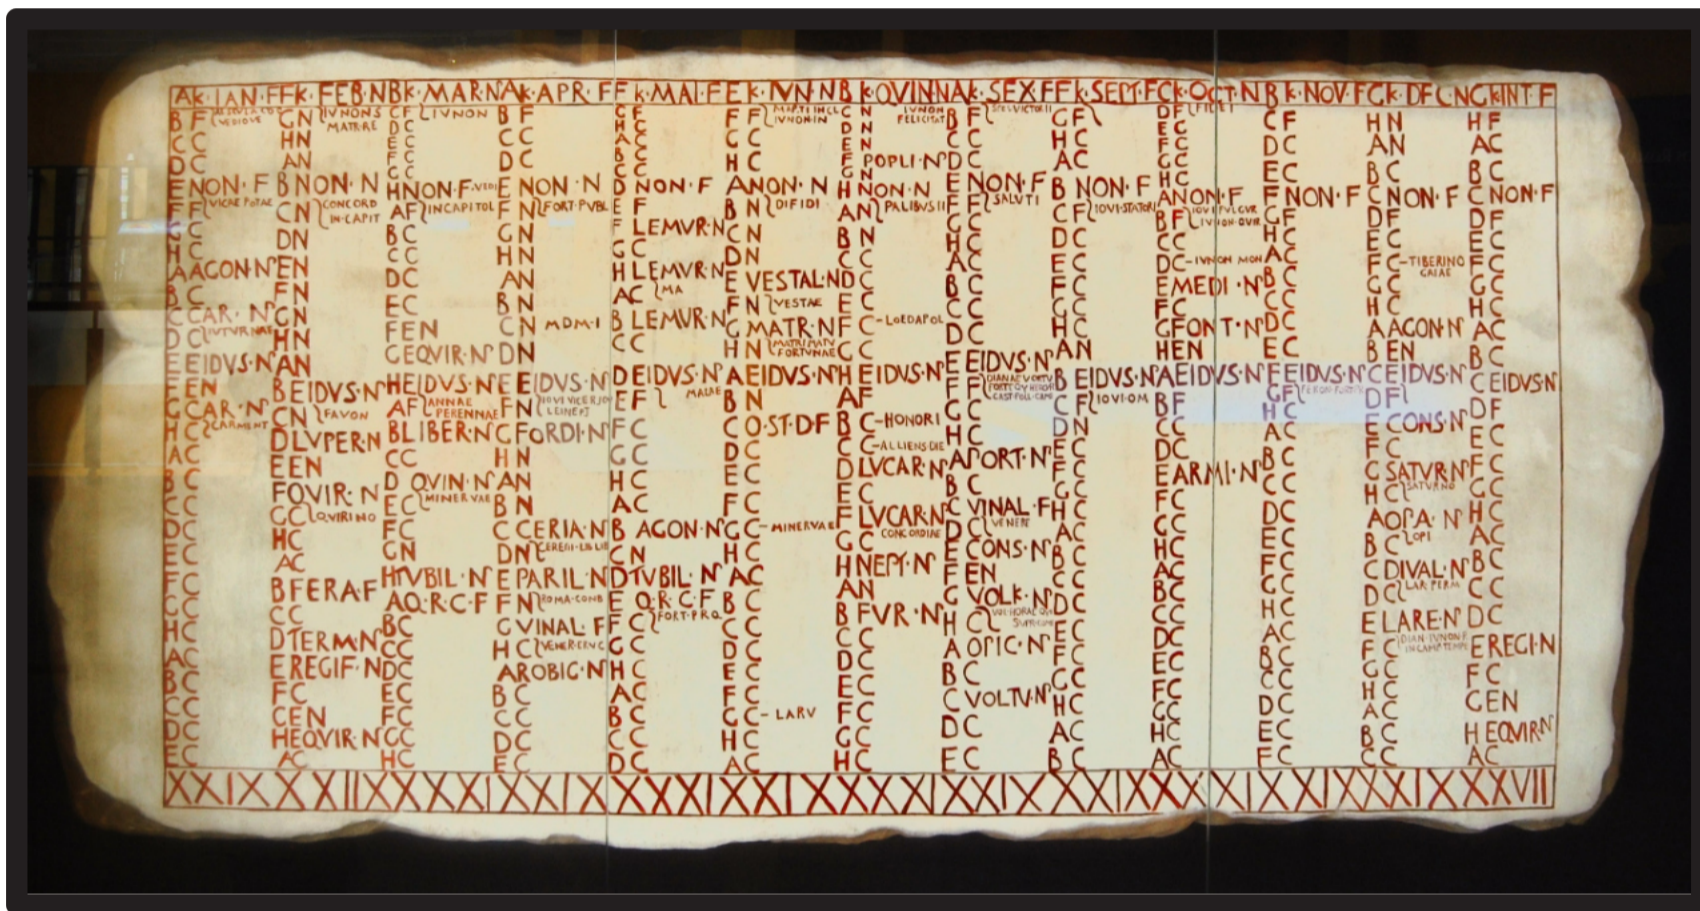 AK·IAN·F FK·FEB·N BK·MAR·N AK·APR·F FK·MAI·F EK·IVN·N BK·QVIN·N AK·SEX·F FK·SEPT·F CK·OCT·N BK·NOV·F GK·DEC·N GK·INT·F
BF
VEDIOVE
CC
DC
ENON·F
FF VICAE POTAE
GC
HC
AAGON·N
BC
CCAR·N
DC IVTVRNAE
EEIDVS·N
FEN
GCAR·N
HC CARMENT
AC
BC
CC
DC
EC
FC
GC
HC
AC
BC
CC
DC
EC
GN IVNONS
MATR·RE
HN
AN
BNON·N
CN CONCORD
IN·CAPIT
DN
EN
FN
GN
HN
AN
BEIDVS·N
CN FAVON
DLVPER·N
EEN
FQVIR·N
GC QVIRINO
HC
AC
BFERA·F
CC
DTERM·N
EREGIF·N
FC
GEN
HEQVIR·N
AC
CF IVNON
DC
EC
FC
GC
HNON·F VEDI
AF INCAPITOL
BC
CC
DC
EC
FEN
GEQVIR·N
HEIDVS·N
AF ANNAE
PERENNAE
BLIBER·N
CC
DQVIN·N
EC MINERVAE
FC
GN
HTVBIL·N
AQ·R·C·F
BC
CC
DC
EC
FC
GC
HC
BF
CC
DC
ENON·N
FN FORT·PVBL
GN
HN
AN
BN
CN MDM·I
DN
EEIDVS·N
FN IOVI VICE
LEINERT
GFORDI·N
HN
AN
BN
CCERIA·N
DN CERERI·LIB·LIB
EPARIL·N
FN ROMA·COND
GVINAL·F
HC VENER·ERVC
AROBIG·N
BC
CC
DC
EC
GF
HC
AC
BC
CC
DNON·F
EF
FLEMVR·N
GC
HLEMVR·N
AC MA
BLEMVR·N
CC
DEIDVS·N
EF MAIAE
FC
GC
HC
AC
BAGON·N
CN
DTVBIL·N
EQ·R·C·F
FC FORT·P·R·Q
GC
HC
AC
BC
CC
DC
FF MARTI IN CL
IVNON·IN
GC
HC
ANON·N
BN DIFIDI
CN
DN
EVESTAL·N
FN VESTAE
GMATR·N
HN MATRI MATV
FORTVNAE
AEIDVS·N
BN
CQ·ST·D·F
DC
EC
FC
GC MINERVAE
HC
AC
BC
CC
DC
EC
FC
GC LARV
HC
AC
CN IVNON
FELICITAT
DN
EN
FPOPLI·N
GN
HNON·N
AN PALIBVS II
BN
CC
DC
EC
FC LOEDAPOL
GC
HEIDVS·N
AF
BC HONORI
CC ALLIENS DIE
DLVCAR·N
EC
FLVCAR·N
CONCORDIAE
GC
HNEPT·N
AN
BFVR·N
CC
DC
EC
FC
GC
HC
BF
CC
DC
ENON·F
FF SALVTI
GC
HC
AC
BC
CC
DC
EEIDVS·N
FF DIANAE VORTV
CAST·POLL·CAME
GC
HC
APORT·N
BC
CVINAL·F
DC VENERE
ECONS·N
FEN
GVOLK·N
HC
AOPIC·N
BC
CVOLTV·N
DC
EC
GF
HC
AC
BNON·F
CF IOVI·STATORI
DC
EC
FC
GC
HC
AN
BEIDVS·N
CF IOVI·OM
DN
EC
FC
GC
HC
AC
BC
CC
DC
EC
FC
GC
HC
AC
BC
DF FIDEI
EC
FC
GC
HC
ANON·F
BF IOVI FVLGVR
IVNON·QVIR
CC
DC IVNON MON
EMEDI·N
FC
GFONT·N
HEN
AEIDVS·N
BF
CC
DC
EARMI·N
FC
GC
HC
AC
BC
CC
DC
EC
FC
GC
HC
AC
CF
DC
EC
FNON·F
GF
HC
AC
BC
CC
DC
EC
FEIDVS·N
GF
HC
AC
BC
CC
DC
EC
FC
GC
HC
AC
BC
CC
DC
EC
FC
HN
AN
BC
CNON·F
DF
EC
FC TIBERINO
GAIAE
GC
HC
AAGON·N
BEN
CEIDVS·N
DF
ECONS·N
FC
GSATVR·N
HC SATVRNO
AOPA·N
BC OPI
CDIVAL·N
DC LAR PERM
ELARE·N
FC DIAN·IVNON·R
IN CAMP TEMPE
GC
HC
AC
BC
CC
HF
AC
BC
CNON·F
DF
EC
FC
GC
HC
AC
BC
CEIDVS·N
DF
EC
FC
GC
HC
AC
BC
CC
DC
EREGI·N
FC
GEN
HEQVIR·N
AC
XXIX XXIIX XXXI XXIX XXXI XXIX XXXI XXIX XXIX XXXI XXIX XXIX XXVII